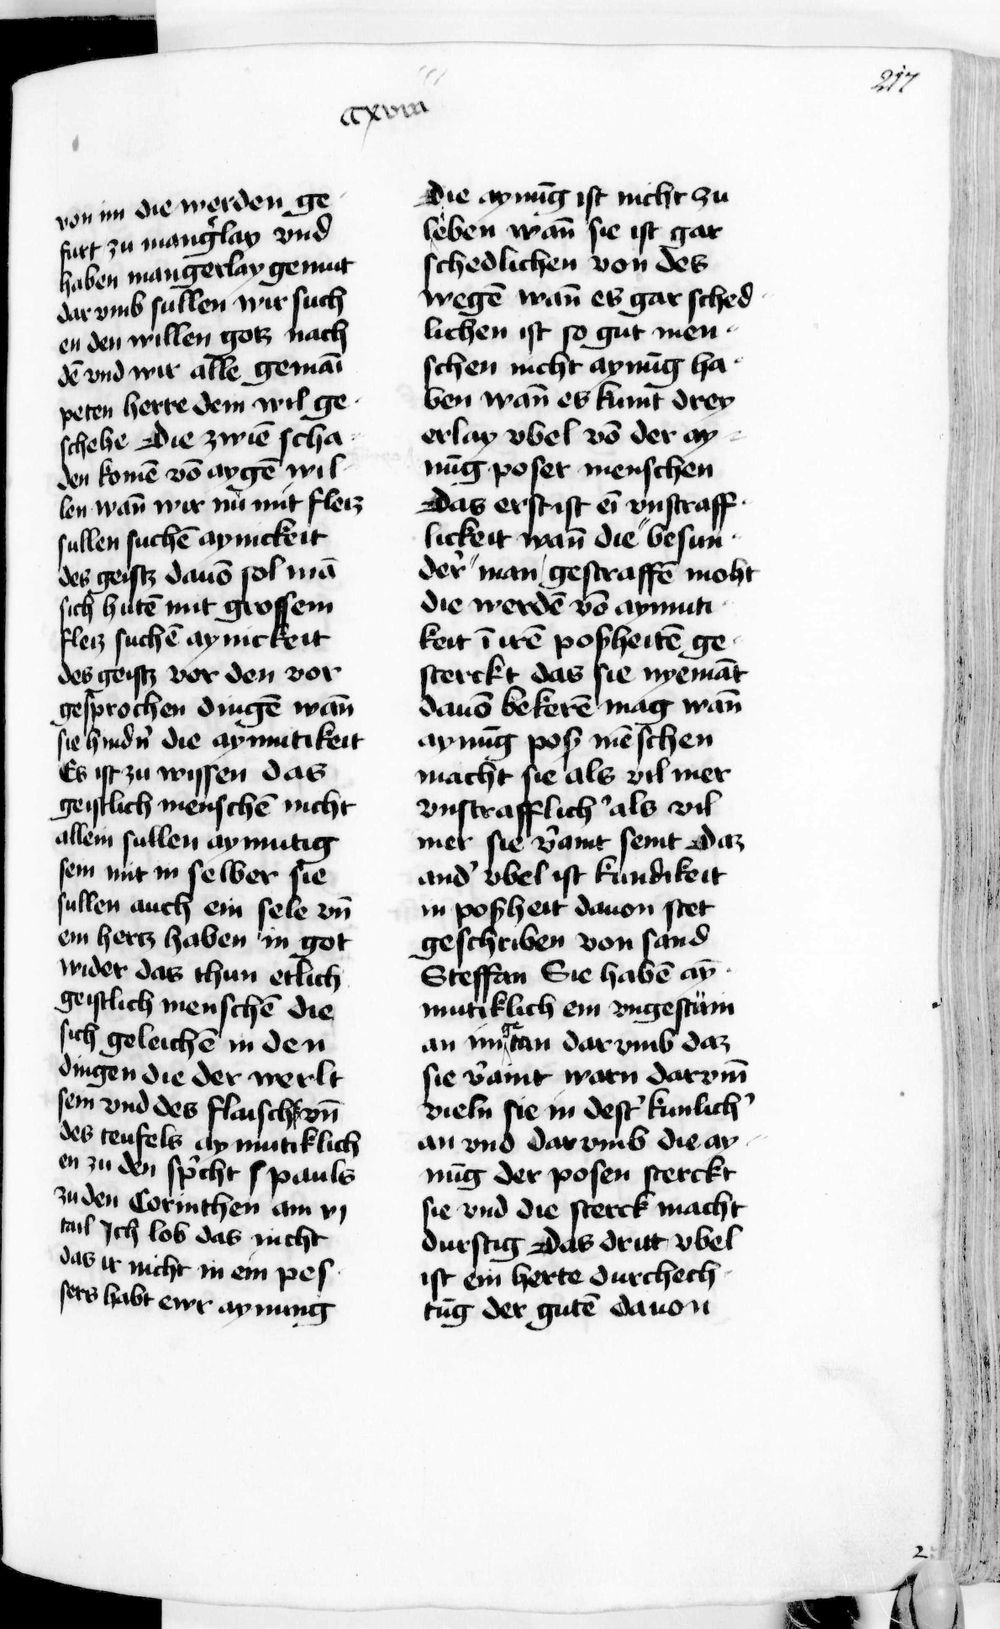 217
cxviii
von im die werden ge-
furt zu mang̛lay vnd
haben mangerlay gemut
dar vmb sullen wir such
en den willen gotz nach
dē vnd wir alle gemāī
peten herre dein wil ge-
schehe Die zwiē scha-
den komē vō aygē wil-
len wañ wir nu mit fleiz
sullen suchē aynickeit
des geistz dauō sol mā
sich hutē mit grossem
fleiz suchē aynickeit
des geistz vor den vor
gesprochen dingē wañ
sie hind̛n die aymutikeit
Es ist zu wissen das
geistlich menschē nicht
allein sullen aymutig
sein mit in selber sie
sullen auch ein sele vñ
ein hertz haben in got
wider das thun etlich
geistlich menschē die
sich geleichē in den
dingen die der werlt
sein vnd des flaischs vñ
des teufels aymutiklich
en zu den sp̛cht s pauls
zu den Corinthen am vj
tail Ich lob das nicht
das ir nicht in ein pes-
sers habt ewr aynung
Die aynūg ist nicht zu
leben wañ sie ist gar
schedlichen von des
wegē wañ es gar sched-
lichen ist so gut men-
schen nicht aynūg ha-
ben wañ es kumt drey
erlay vbel vō der ay-
nūg poser menschen
Das erst ist eī vnstraff-
lickeit wañ die besun-
der̛ man gestraffē moht
die werdē vō aymuti-
keit ī irē posheitē ge-
sterckt das sie nyemāt
dauō bekerē mag wañ
aynūg pos mēschen
macht sie als vil mer
vnstrafflich̛ als vil
mer sie v̛aint seint Daz
and̛ vbel ist kundikeit
in posheit dauon stet
geschriben von sand
Steffan Sie habē aȳ-
mutiklich ein vngestüm
an im getan dar vmb daz
sie v̛aint warn darvm̄
vieln sie in dest̛ kunlich̛
an vnd darvmb die ay-
nūg der posen sterckt
sie vnd die sterck macht
durstig Das dritt vbel
ist ein herte durchech-
tūg der gutē dauon
2